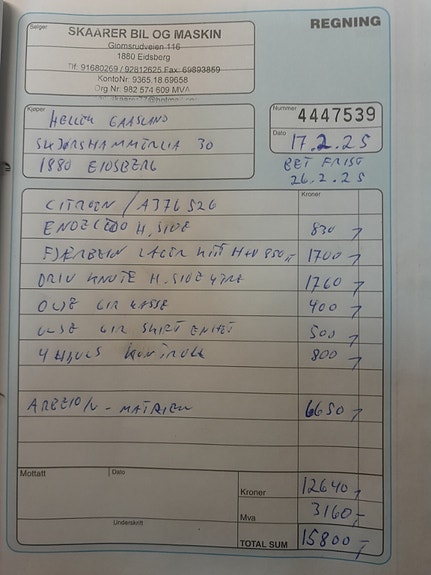 REGNING
Selger
SKAARER BIL OG MASKIN
Glomsrudveien 116
1880 Eidsberg
Tlf: 91680269 / 92812625 Fax: 69893859
KontoNr: 9365.18.69658
Org Nr: 982 574 609 MVA
Kjøper
Nummer 4447539
SKJØRSHAMMERLIA 30
1880 EIDSBERG
Dato 17.2.25
BET FRIST
26.2.25
Kroner
CITROEN / AJ76526
ENDELEDD H. SIDE 830,-
LAGER KITT H+V 850,- 1700,-
DRIV KNUTE H. SIDE YTRE 1760,-
OLJE GIR KASSE 400,-
OLJE GIR SKIFT ENHET 500,-
4 HJULS KONTROLL 800,-
ARBEID/V - MATRIELL 6650,-
Mottatt
Dato
Underskrift
Kroner 12640,-
Mva 3160,-
TOTAL SUM 15800,-